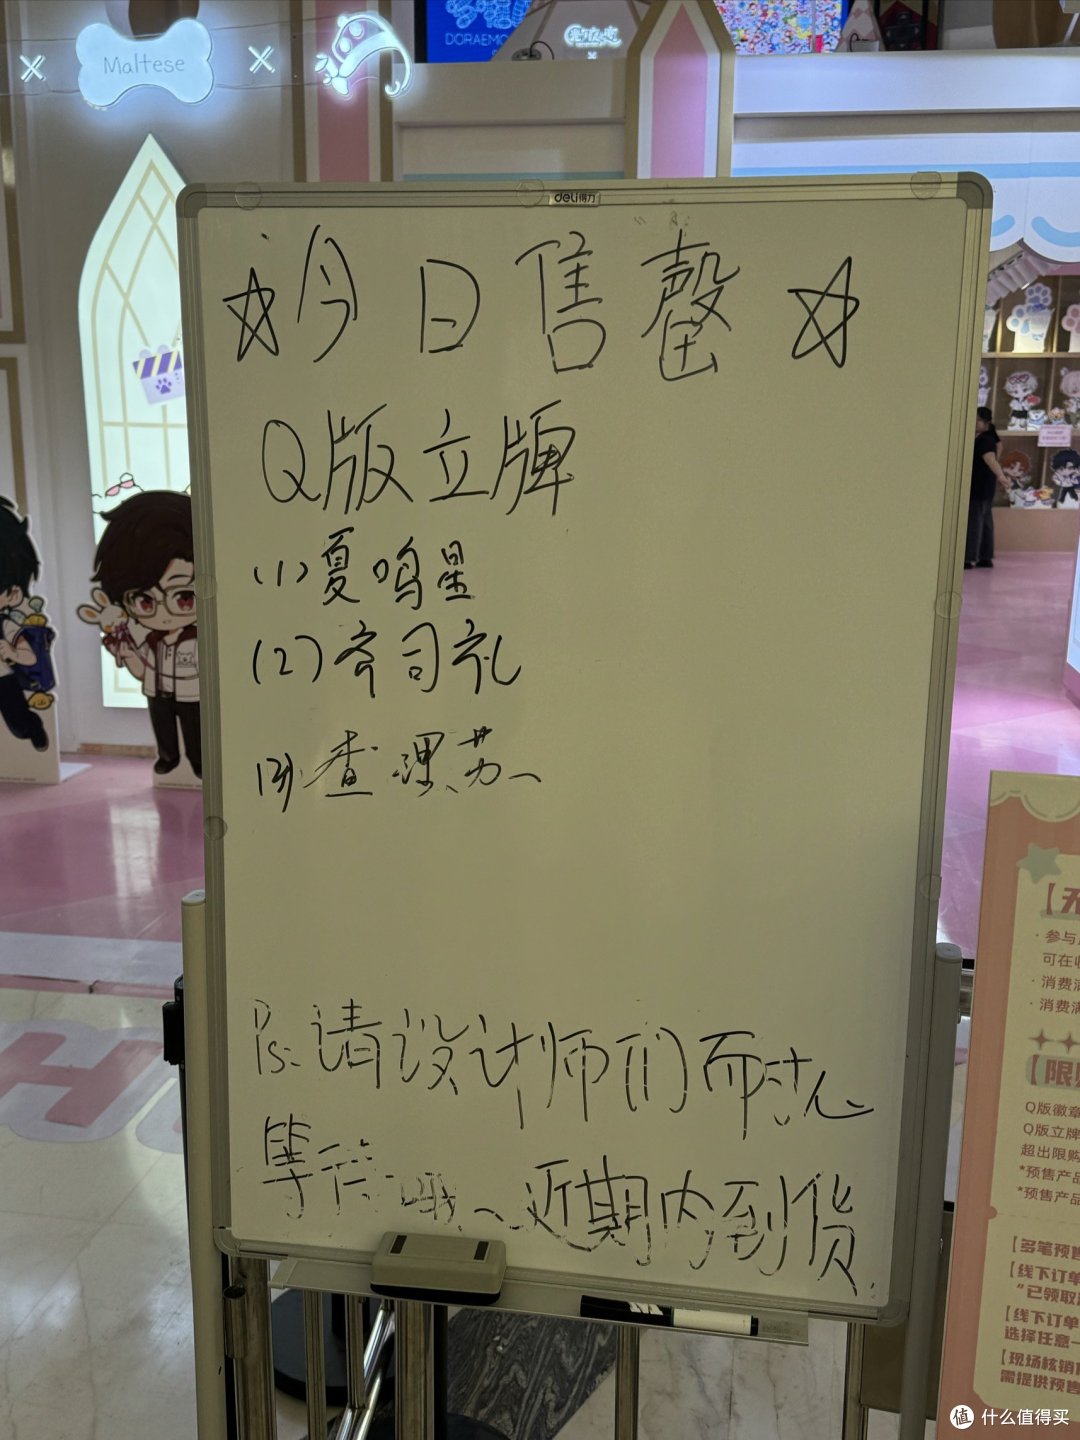 Maltese
DORAEMO
deli得力
☆今日售罄☆
Q版立牌
(1)夏鸣星
(2)齐司礼
(3)查理苏
Ps:请设计师们耐心
等待哦~近期内到货
【无
·参与
可在
·消费满
·消费满
【限购
Q版徽章
Q版立牌
超出限购
*预售产品
*预售产品
【多笔预售
【线下订单
“已领取
【线下订单
选择任意一
【现场核销
需提供预售
值 什么值得买